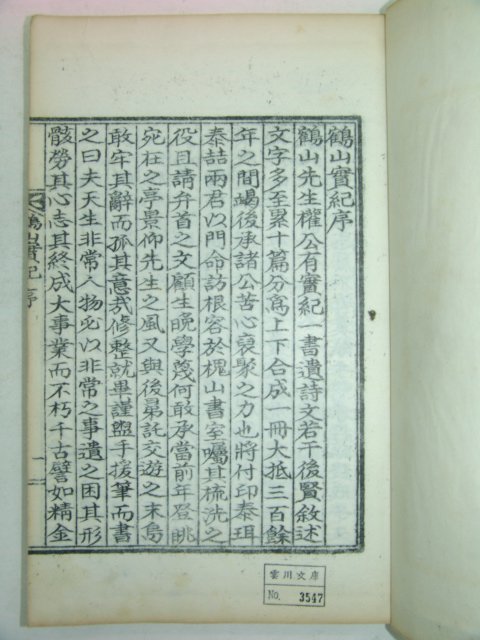 鶴山實紀序
鶴山先生權公有實紀一書遺詩文若干後賢敘述
文字多至累十篇分爲上下合成一冊大抵三百餘
年之間竭後承諸公苦心裒聚之力也將付印泰珥
泰喆兩君以門命訪根容於槐山書室囑其梳洗之
役且請弁首之文顧生晩學蔑何敢承當前年登眺
宛在之亭景仰先生之風又與後昆託交遊之末烏
敢牢其辭而孤其意哉修整就畢謹盥手援筆而書
之曰夫天生非常人物必以非常之事遺之困其形
骸勞其心志其終成大事業而不朽千古譬如精金
鶴山實紀 序
一
雲川文庫
No. 3547